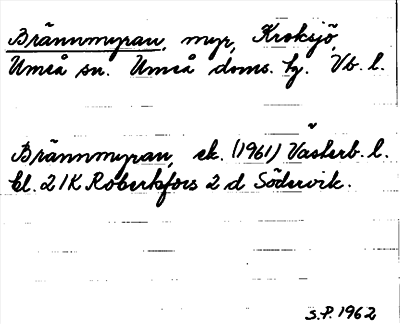 Brännmyran, myr, Kroksjö,
Umeå sn. Umeå doms. hg. Vb. l.
Brännmyran, ek. (1961) Västerb. l.
bl. 21K Robertsfors 2 d Södervik.
S.P. 1962